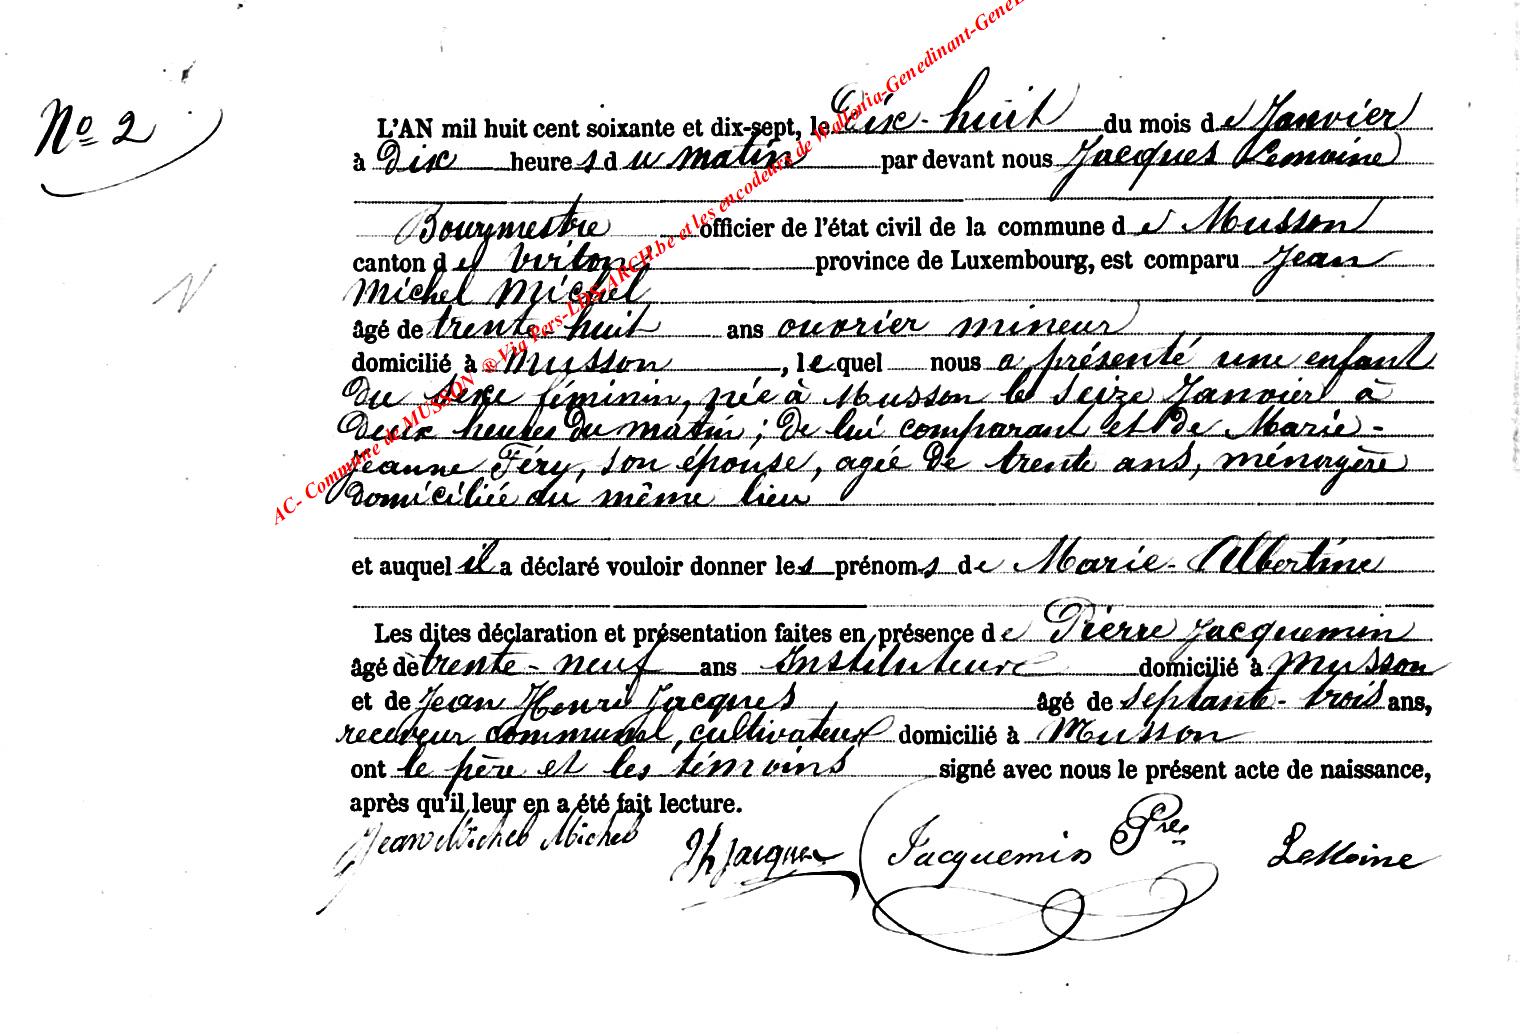 No 2
L'AN mil huit cent soixante et dix-sept, le Dix-huit du mois de Janvier
à Dix heures du matin par devant nous Jacques Lemoine
Bourgmestre officier de l'état civil de la commune de Musson
canton de Virton province de Luxembourg, est comparu Jean
Michel Michel
âgé de trente-huit ans ouvrier mineur
domicilié à Musson, lequel nous a présenté une enfant
Du sexe féminin, née à Musson le seize Janvier à
Deux heures Du matin ; De lui comparant et De Marie-
Jeanne Féry, son épouse, agée De trente ans, ménagère
Domiciliée au même lieu
et auquel il a déclaré vouloir donner les prénoms de Marie-Albertine
Les dites déclaration et présentation faites en présence de Pierre Jacquemin
âgé de trente-neuf ans Instituteur domicilié à Musson
et de Jean Henri Jacques âgé de septante-trois ans,
receveur communal, cultivateur domicilié à Musson
ont le père et les témoins signé avec nous le présent acte de naissance,
après qu'il leur en a été fait lecture.
Jean Michel Michel Jh Jacques Jacquemin Pre LeMoine
AC- Commune de MUSSON ® Via Pers-LDS-ARCH.be et les encodeurs de Wallonia-Genedinant-GeneL